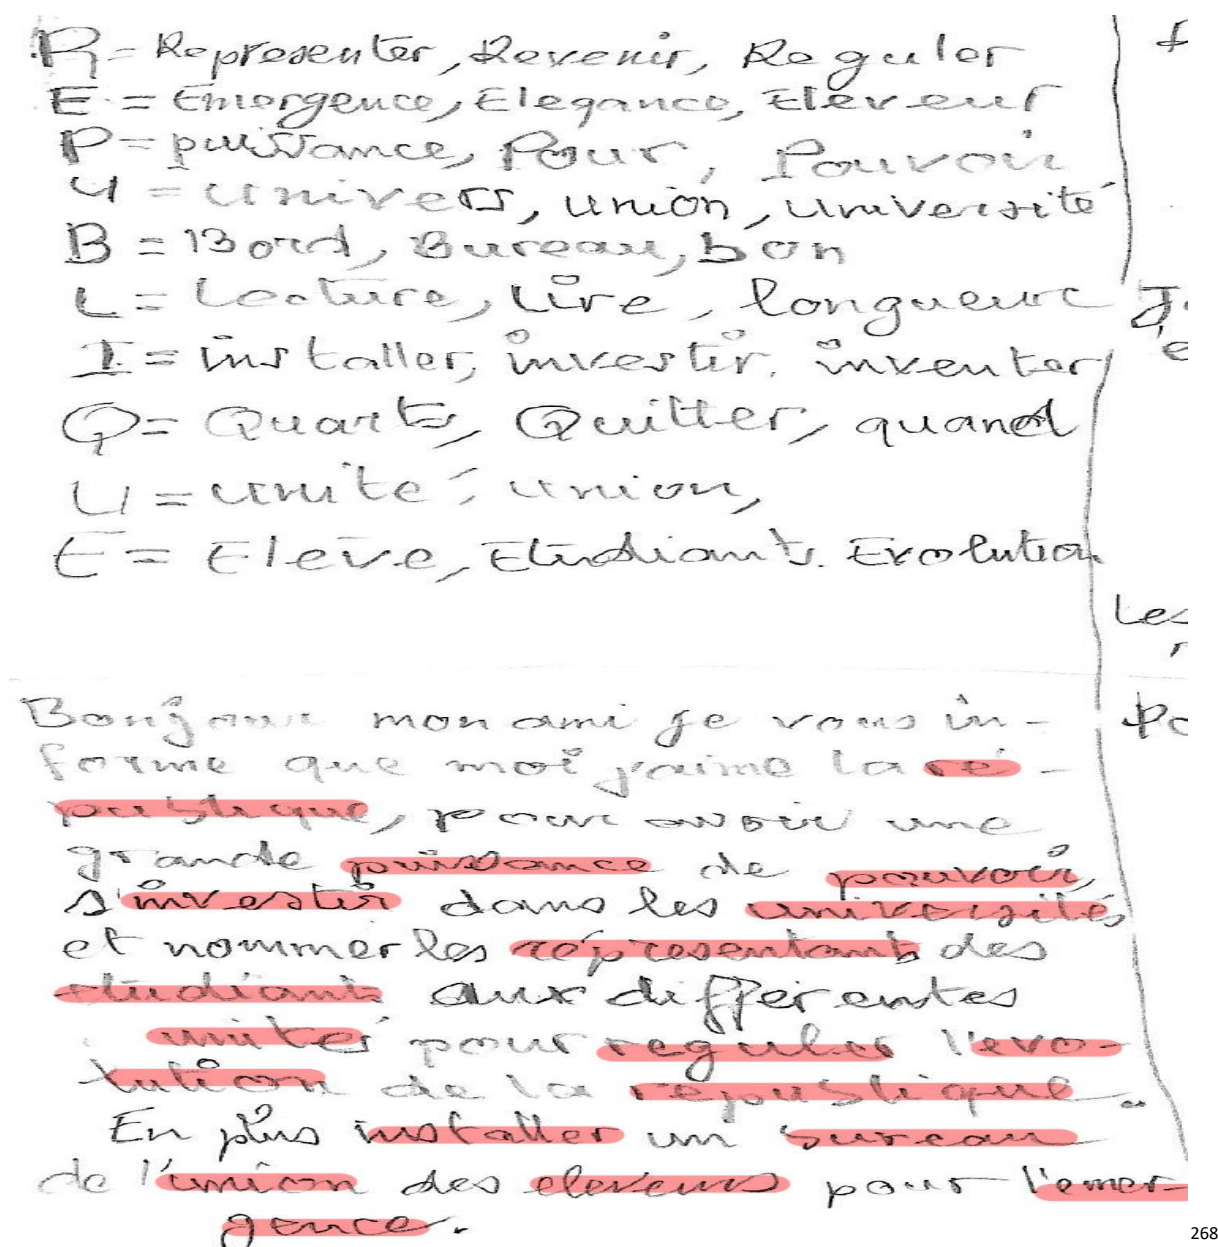 R = Representer, Revenir, Reguler
E = Emergence, Elegance, Eleveur
P = puissance, Pour, Pouvoir
U = Univers, union, université
B = Bord, Bureau, bon
L = Lecture, Lire, longueur
I = installer, investir, inventer
Q = Quartz, Quitter, quand
U = unité, union,
E = Eleve, Etudiants. Evolution
Les
Bonjour mon ami je vous in-
forme que moi j'aime la ré-
publique, pour avoir une
grande puissance de pouvoir,
s'investir dans les universités,
et nommer les répresentants des
etudiants aux differentes
unités pour reguler l'evo-
lution de la republique..
En plus installer un bureau
de l'union des eleveurs pour l'emer-
gence.
268